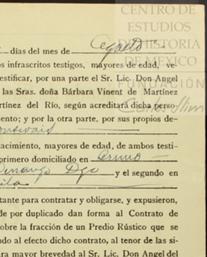 CENTRO DE
ESTUDIOS
DE HISTORIA
DE MÉXICO
FUNDACIÓN
.. días del mes de Agosto
os infrascritos testigos, mayores de edad, ve-
testificar, por una parte el Sr. Lic. Don Angel
las Sras. doña Bárbara Vinent de Martínez
artínez del Río, según acreditada dicha per-
ento; y por la otra parte, por sus propios de-
acimiento, mayores de edad, ambos testi-
primero domiciliado en
Durango Dgo y el segundo en
tante para contratar y obligarse, y expusieron,
de por duplicado dan forma al Contrato de
obre la fracción de un Predio Rústico que se
odo al efecto dicho contrato, al tenor de las si-
ara mayor brevedad al Sr. Lic. Don Angel del